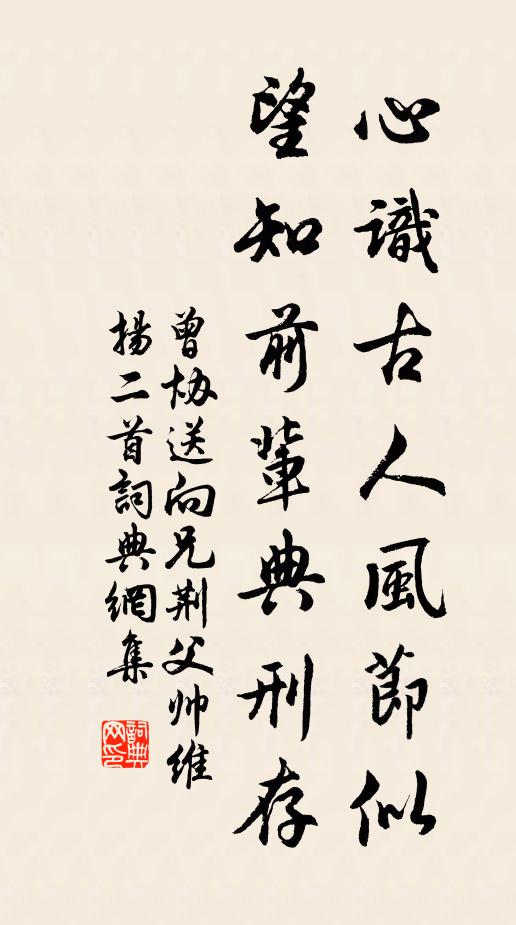 心識古人風節似
望知前輩典刑存
曾協送向兄荆父帅維
揚二首詞典網集
詞典
网印